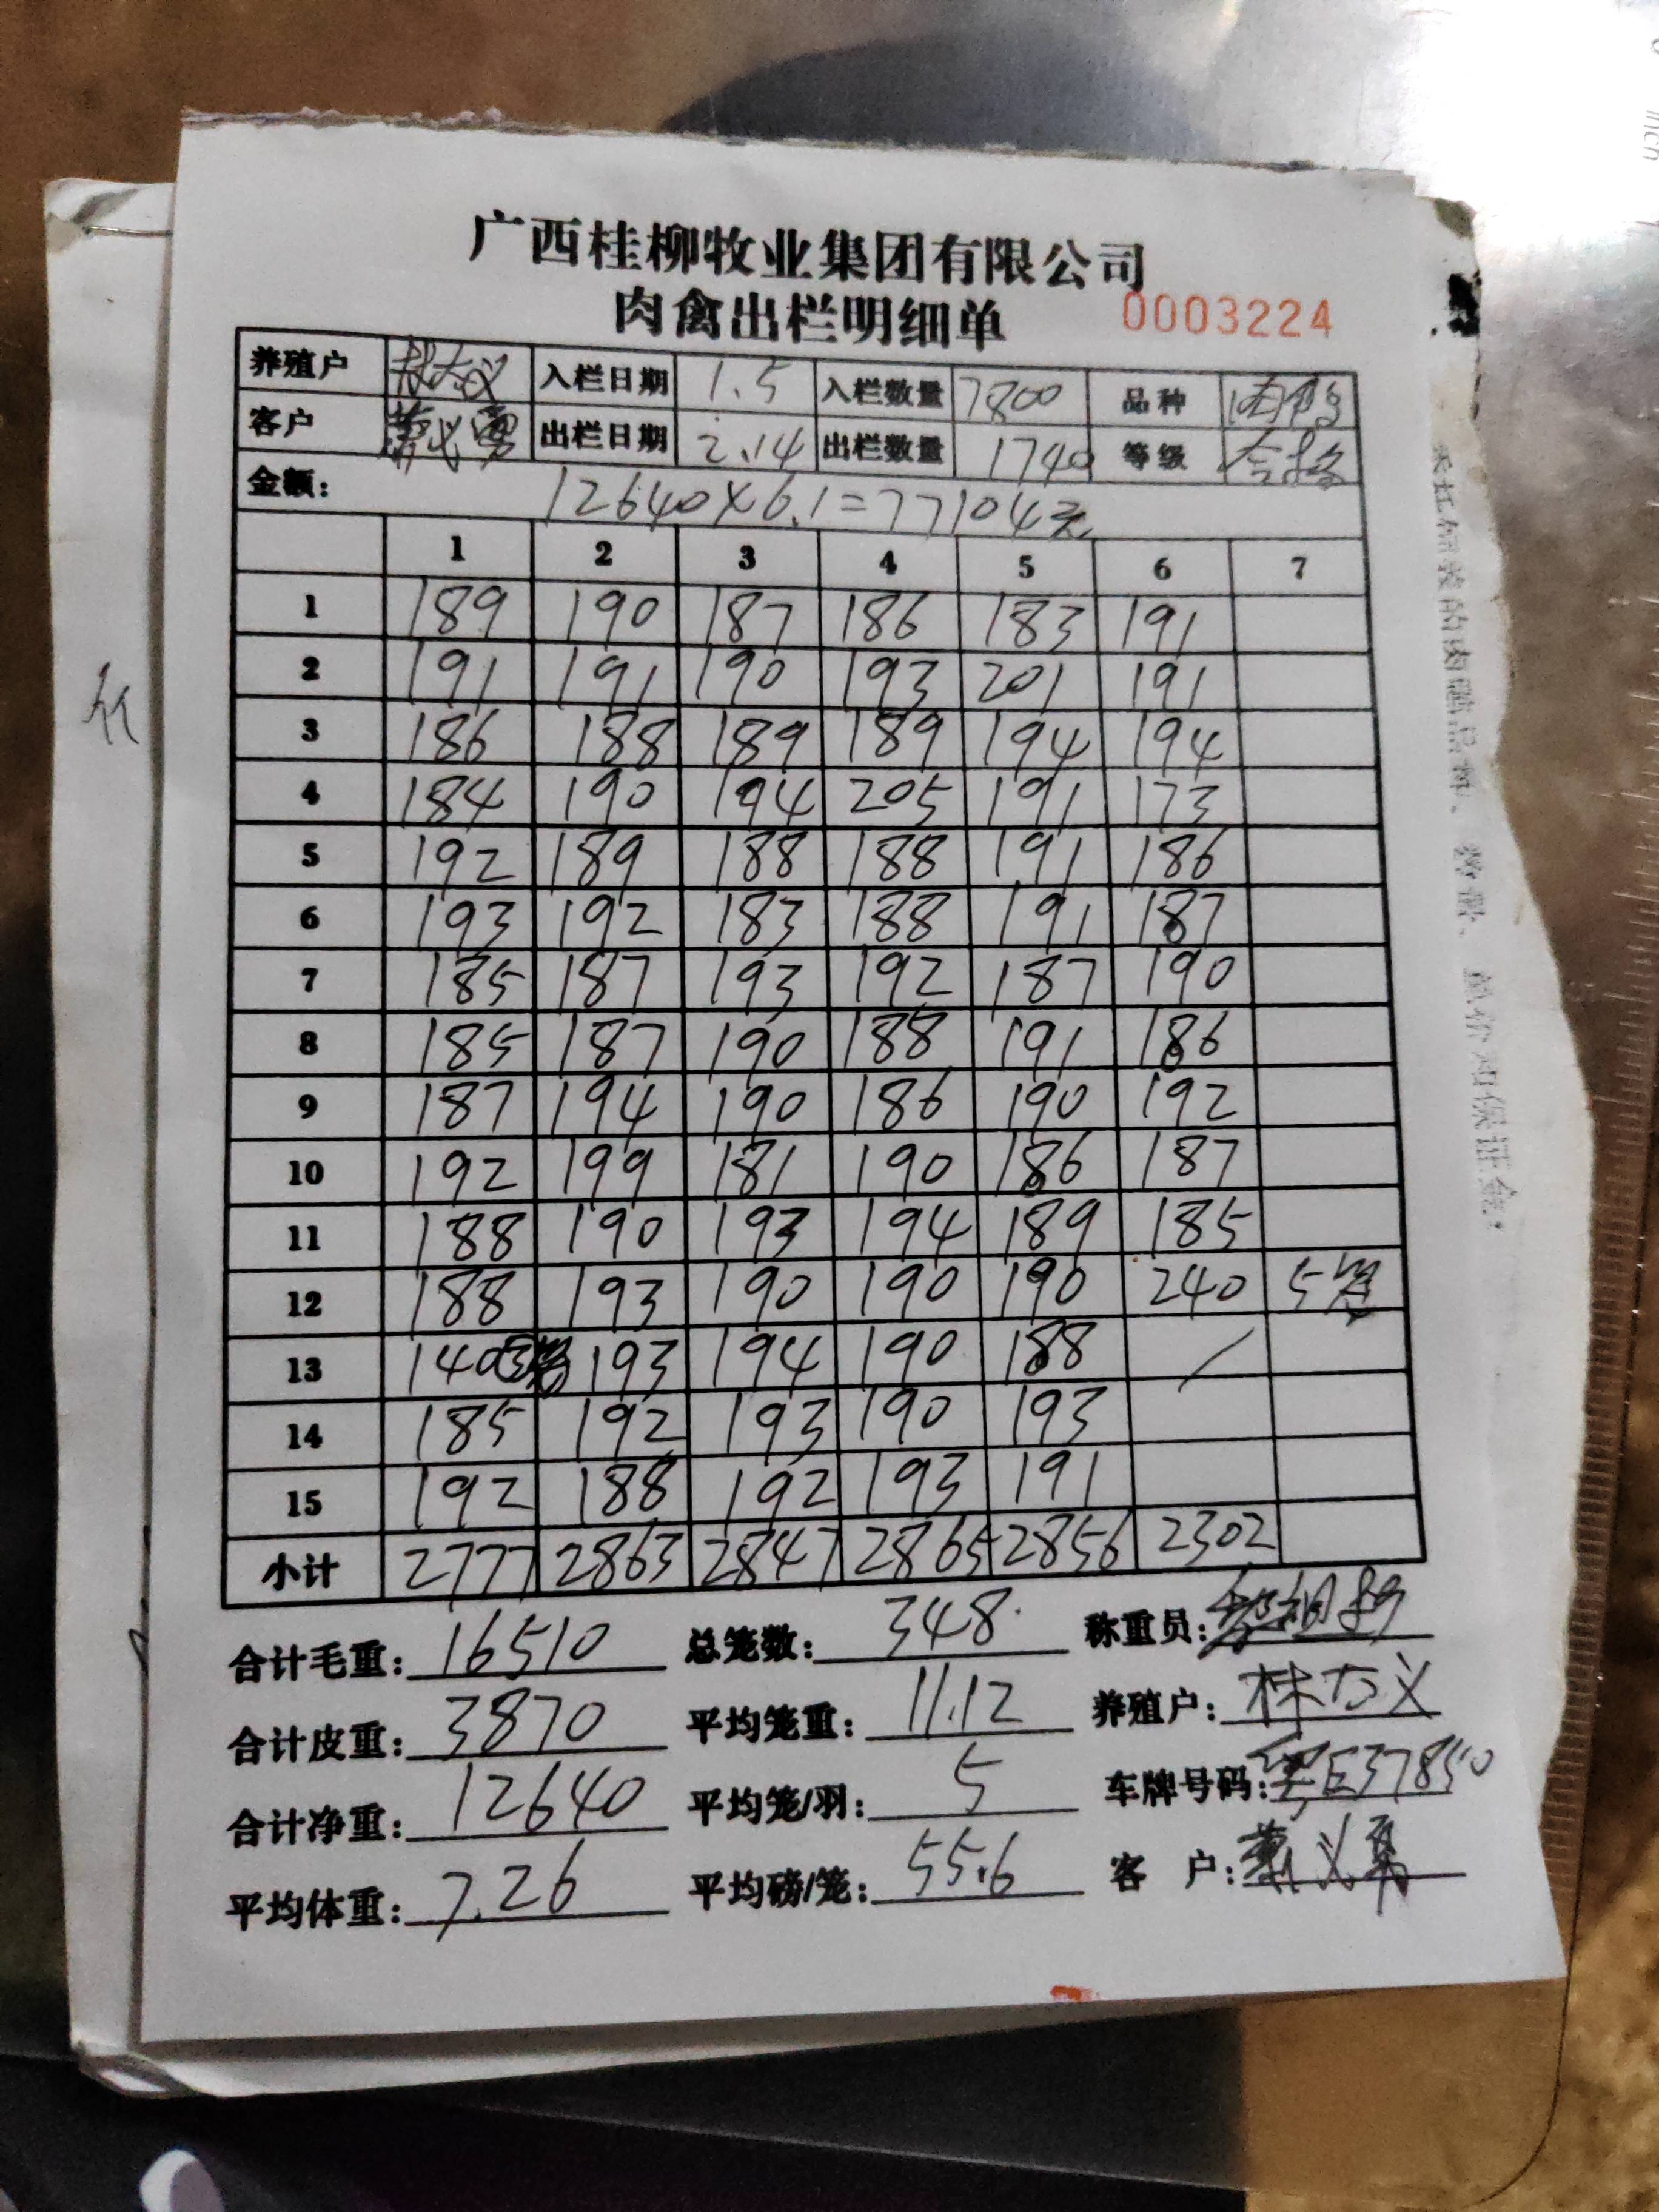 广西桂柳牧业集团有限公司
肉禽出栏明细单 0003224
养殖户 林大义 入栏日期 1.5 入栏数量 7800 品种 肉鸭
客户 萧义勇 出栏日期 2.14 出栏数量 1740 等级 合格
金额: 12640×6.1=77104元
1 2 3 4 5 6 7
1 189 190 187 186 183 191
2 191 191 190 193 201 191
3 186 188 189 189 194 194
4 184 190 194 205 191 173
5 192 189 188 188 191 186
6 193 192 183 188 191 187
7 185 187 193 192 187 190
8 185 187 190 188 191 186
9 187 194 190 186 190 192
10 192 199 181 190 186 187
11 188 190 193 194 189 185
12 188 193 190 190 190 240 5笼
13 140 193 194 190 188 /
14 185 192 193 190 193
15 192 188 192 193 191
小计 2777 2863 2847 2865 2856 2302
合计毛重: 16510 总笼数: 348 称重员:
合计皮重: 3870 平均笼重: 11.12 养殖户: 林大义
合计净重: 12640 平均笼/羽: 5 车牌号码: E37850
平均体重: 7.26 平均磅/笼: 55.6 客 户: 萧义勇